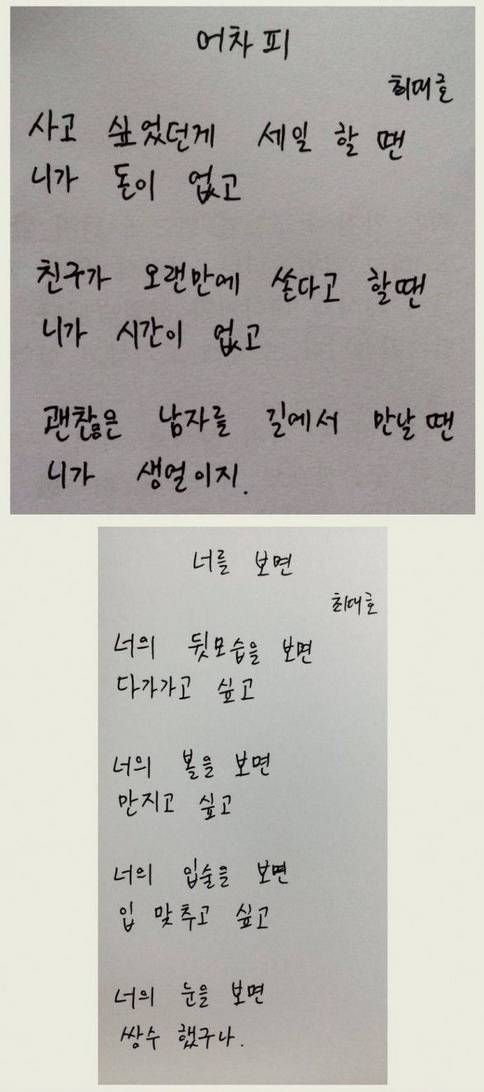 어차피
최대호
사고 싶었던게 세일 할 땐
니가 돈이 없고
친구가 오랜만에 쏜다고 할땐
니가 시간이 없고
괜찮은 남자를 길에서 만날 땐
니가 생얼이지.
너를 보면
최대호
너의 뒷모습을 보면
다가가고 싶고
너의 볼을 보면
만지고 싶고
너의 입술을 보면
입 맞추고 싶고
너의 눈을 보면
쌍수 했구나.